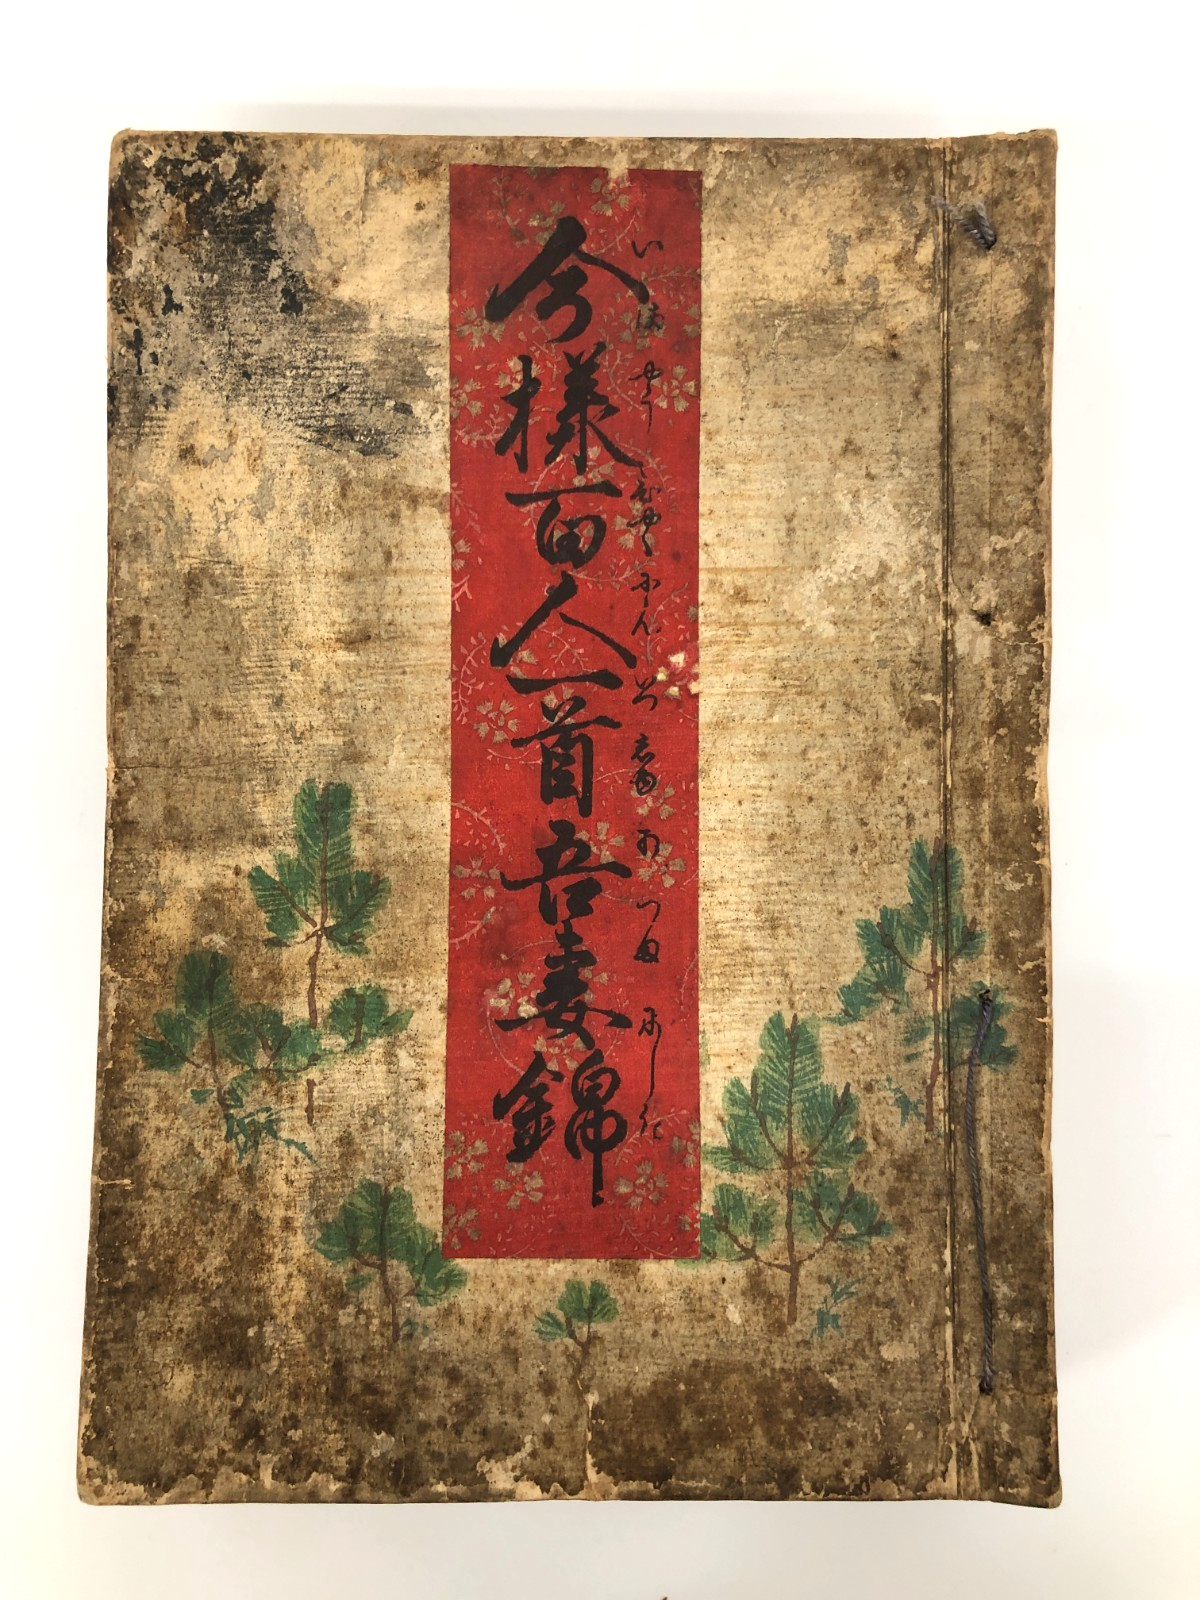 今様百人一首吾妻錦
いまやうひやくにんいつしゆあつまにしき